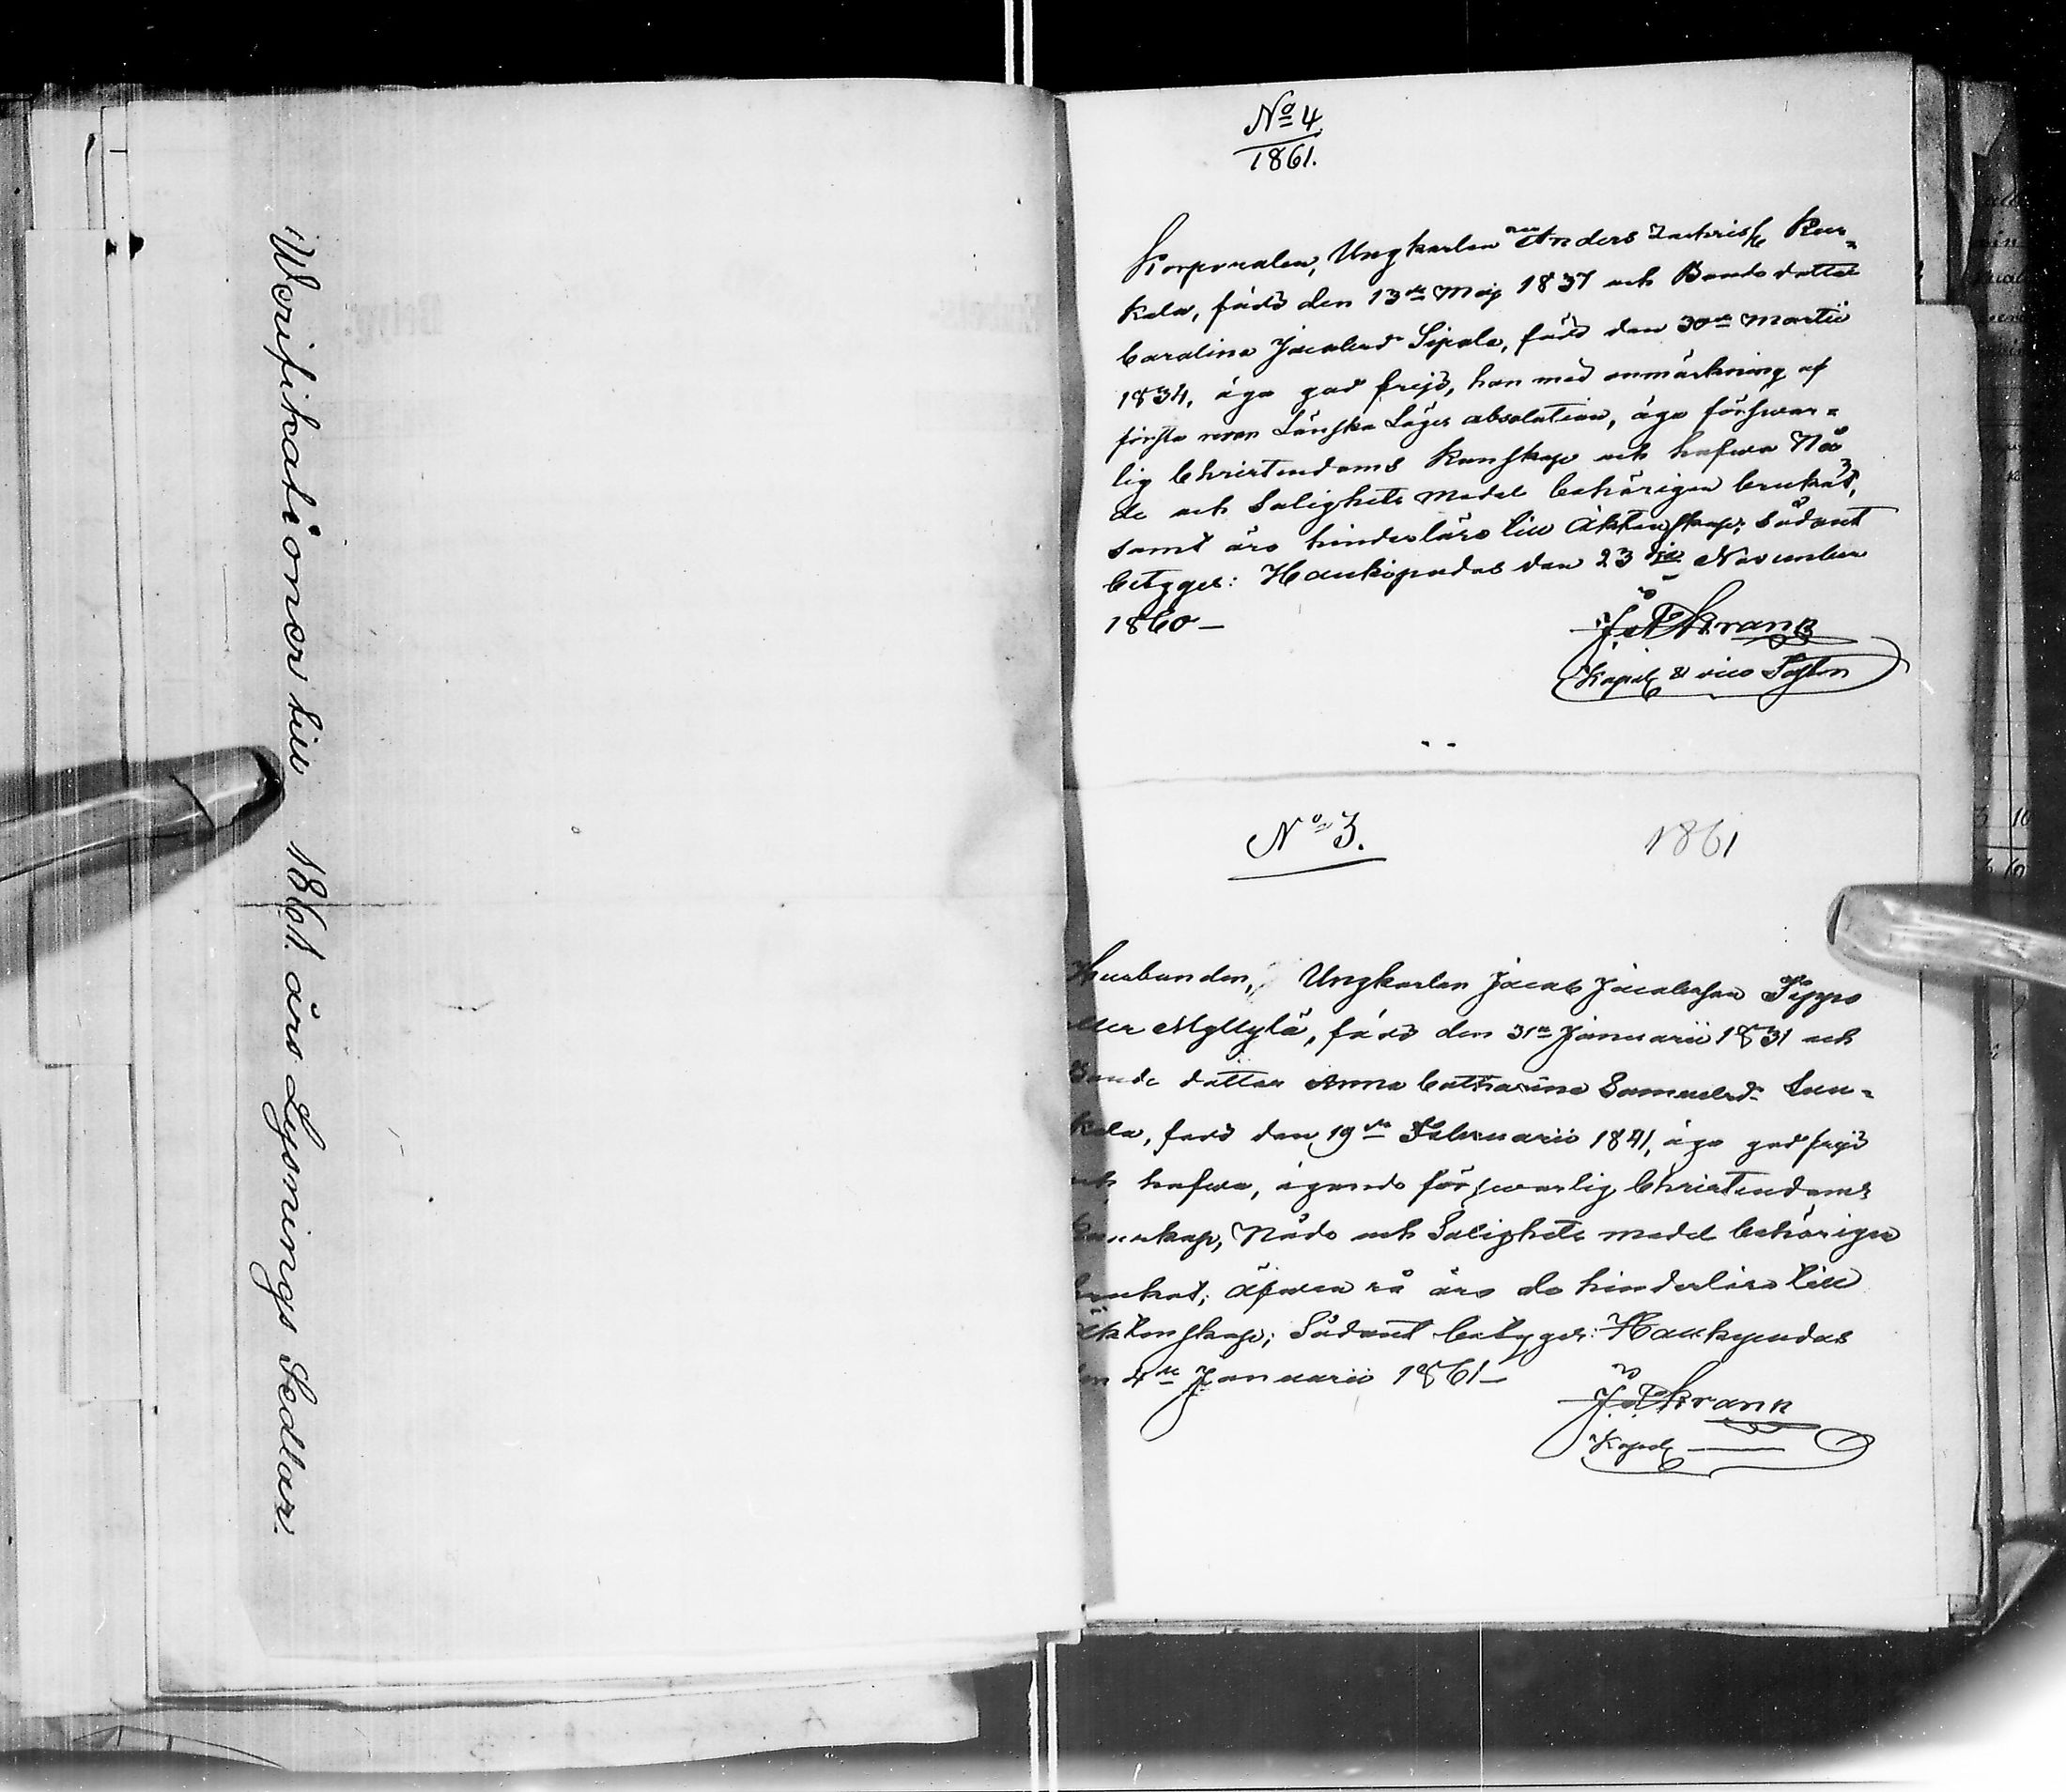 Werifikationer till 1861 års Lysnings Sedlar.
No 4
1861.
Korporalen, Ungkarlen Anders Zachrisson Kur-
kela, född den 13de Maji 1837 och Bonde dotter
Carolina Jacobsdr Sipola, född den 30de Martii
1834, äga god frejd, han med anmärkning af
första resan Länska Läges absolution, äga förswar-
lig Christendoms Kunskap och hafwa Nå
de och Salighets medel behörigen brukat,
samt äro hinderlöse till Äktenskap; Sådant
betyges: Haukipudas den 23dje November
1860 —
J. Skrank
Kapel. & vice Pastor
No 3.
1861
Husbonden, Ungkarlen Jacob Jacobsson Pyppo
eller Myllylä, född den 31sta Januarii 1831 och
Bonde dotter Anna Catharina Samuelsdr
kela, född den 19de Februarii 1841, äga god frejd
och hafwa, ägande förswarlig Christendoms
Kunskap, Nåde och Salighets medel behörigen
brukat; Äfwen så äro de hinderlöse till
Äktenskap; Sådant betyges: Haukipudas
den 4de Januarii 1861 —
J. Skrank
Kapel.